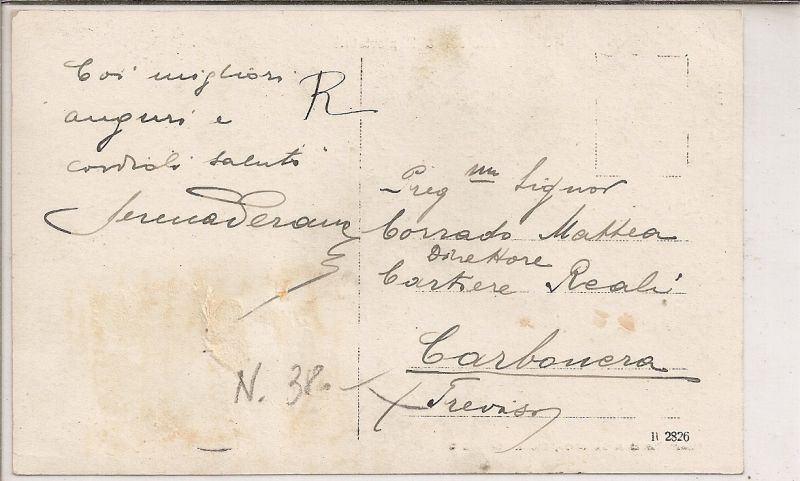 Coi migliori
auguri e
cordiali saluti
R
Preg mo Signor
Corrado Mattea
Direttore
Cartiere Reali
Carbonera
Treviso
N. 38
2826